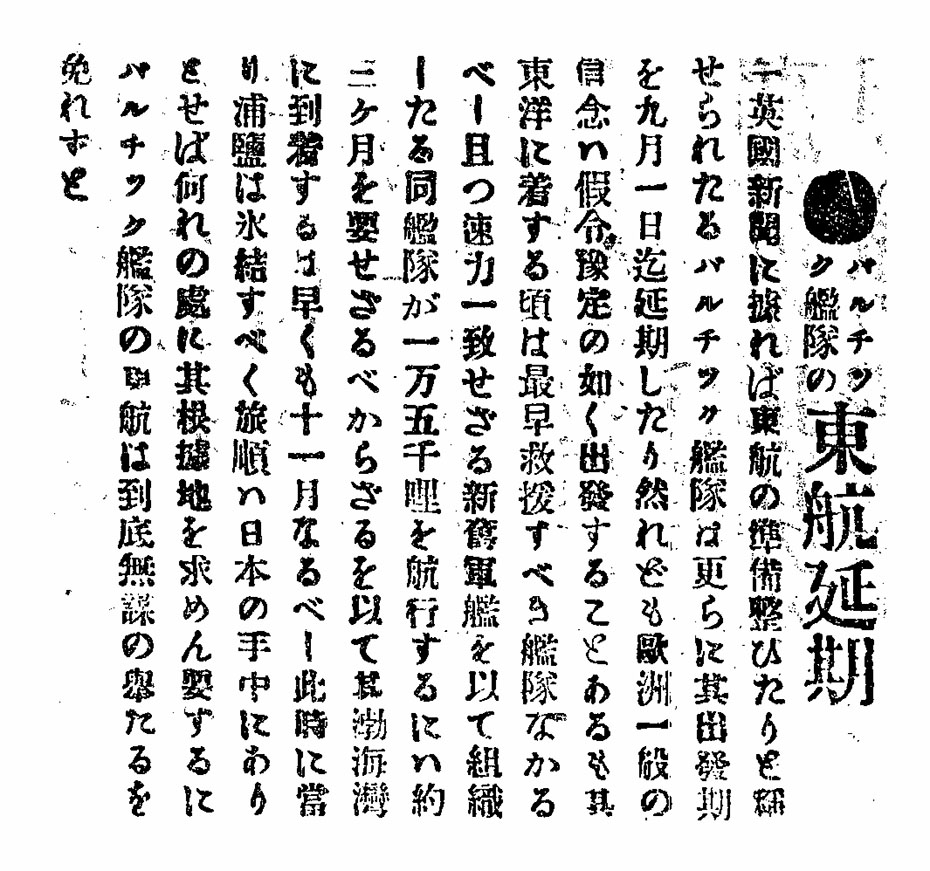 ●バルチック艦隊の東航延期
英國新聞に據れば東航の準備整ひたりと稱
せられたるバルチック艦隊は更らに其出發期
を九月一日迄延期したり然れども歐洲一般の
信念ハ假令豫定の如く出發することあるも其
東洋に着する頃は最早救援すべき艦隊なかる
べー且つ速力一致せざる新舊軍艦を以て組織
ーたる同艦隊が一万五千哩を航行するにハ約
三ケ月を要せざるべからざるを以て其渤海灣
に到着するは早くも十一月なるべー此時に當
り浦鹽は氷結すべく旅順ハ日本の手中にあり
とせば何れの處に其根據地を求めん要するに
バルチック艦隊の東航は到底無謀の擧たるを
免れずと